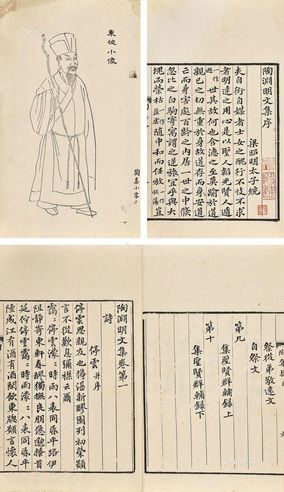 東坡小像
陶淵明文集序
梁昭明太子統
夫自衒自媒者士女之醜行不忮不求
者明達之用心是以聖人韜光賢人遁
世其故何也含德之至莫踰於道
親己之切無重於身故道存而身安道
亡而身害處百齡之內居一世之中倏
忽比之白駒寄寓謂之逆旅宜乎與大
塊而榮枯隨中和而任放
祭從弟敬遠文
自祭文
第九
集聖賢群輔錄上
第十
集聖賢群輔錄下
陶淵明文集卷第一
詩
停雲并序
停雲思親友也罇湛新醪園列初榮願
言不從歎息彌襟云爾
靄靄停雲濛濛時雨八表同昏平路伊
阻靜寄東軒春醪獨撫良朋悠邈搔首
延佇停雲靄靄時雨濛濛八表同昏平
陸成江有酒有酒閒飲東牕願言懷人